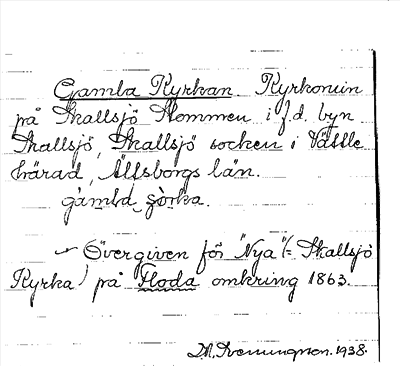 Gamla Kyrkan. Kyrkoruin
på Skallsjö Kommen i f.d. byn
Skallsjö, Skallsjö socken i Vättle
härad, Älfsborgs län.
gamla ço̧rka.
Övergiven för "Nya" (= Skallsjö
Kyrka) på Floda omkring 1863.
1938.